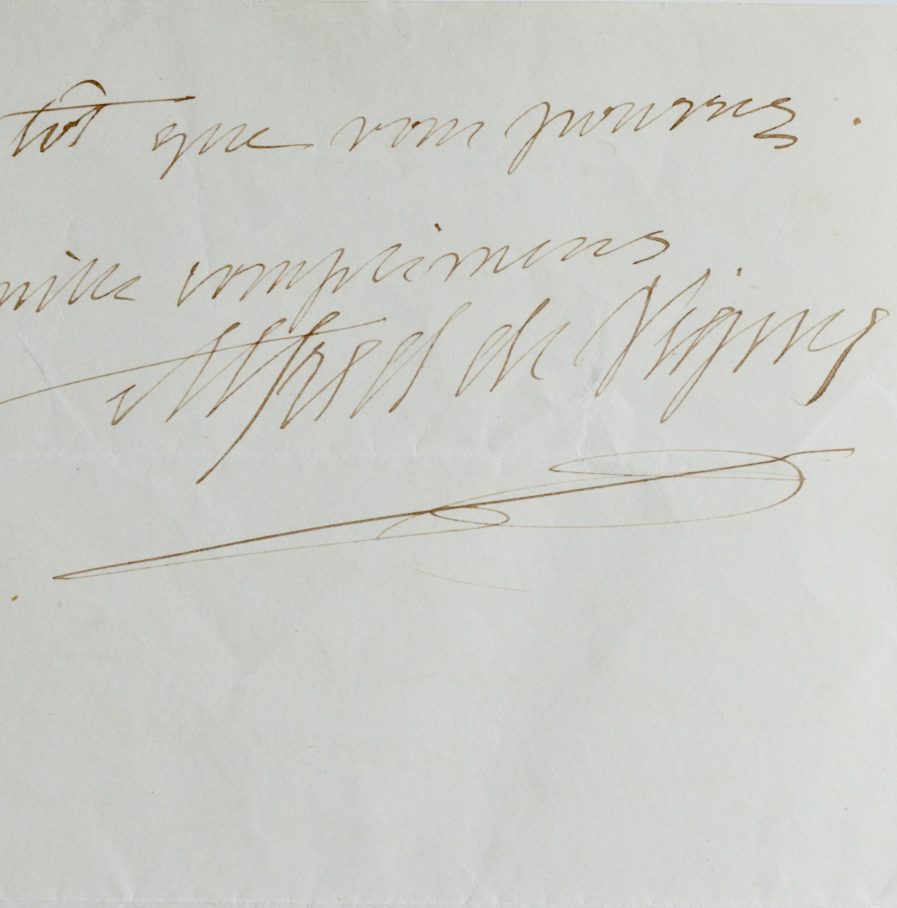 tôt que vous pourrez.
mille complimens
Alfred de Vigny